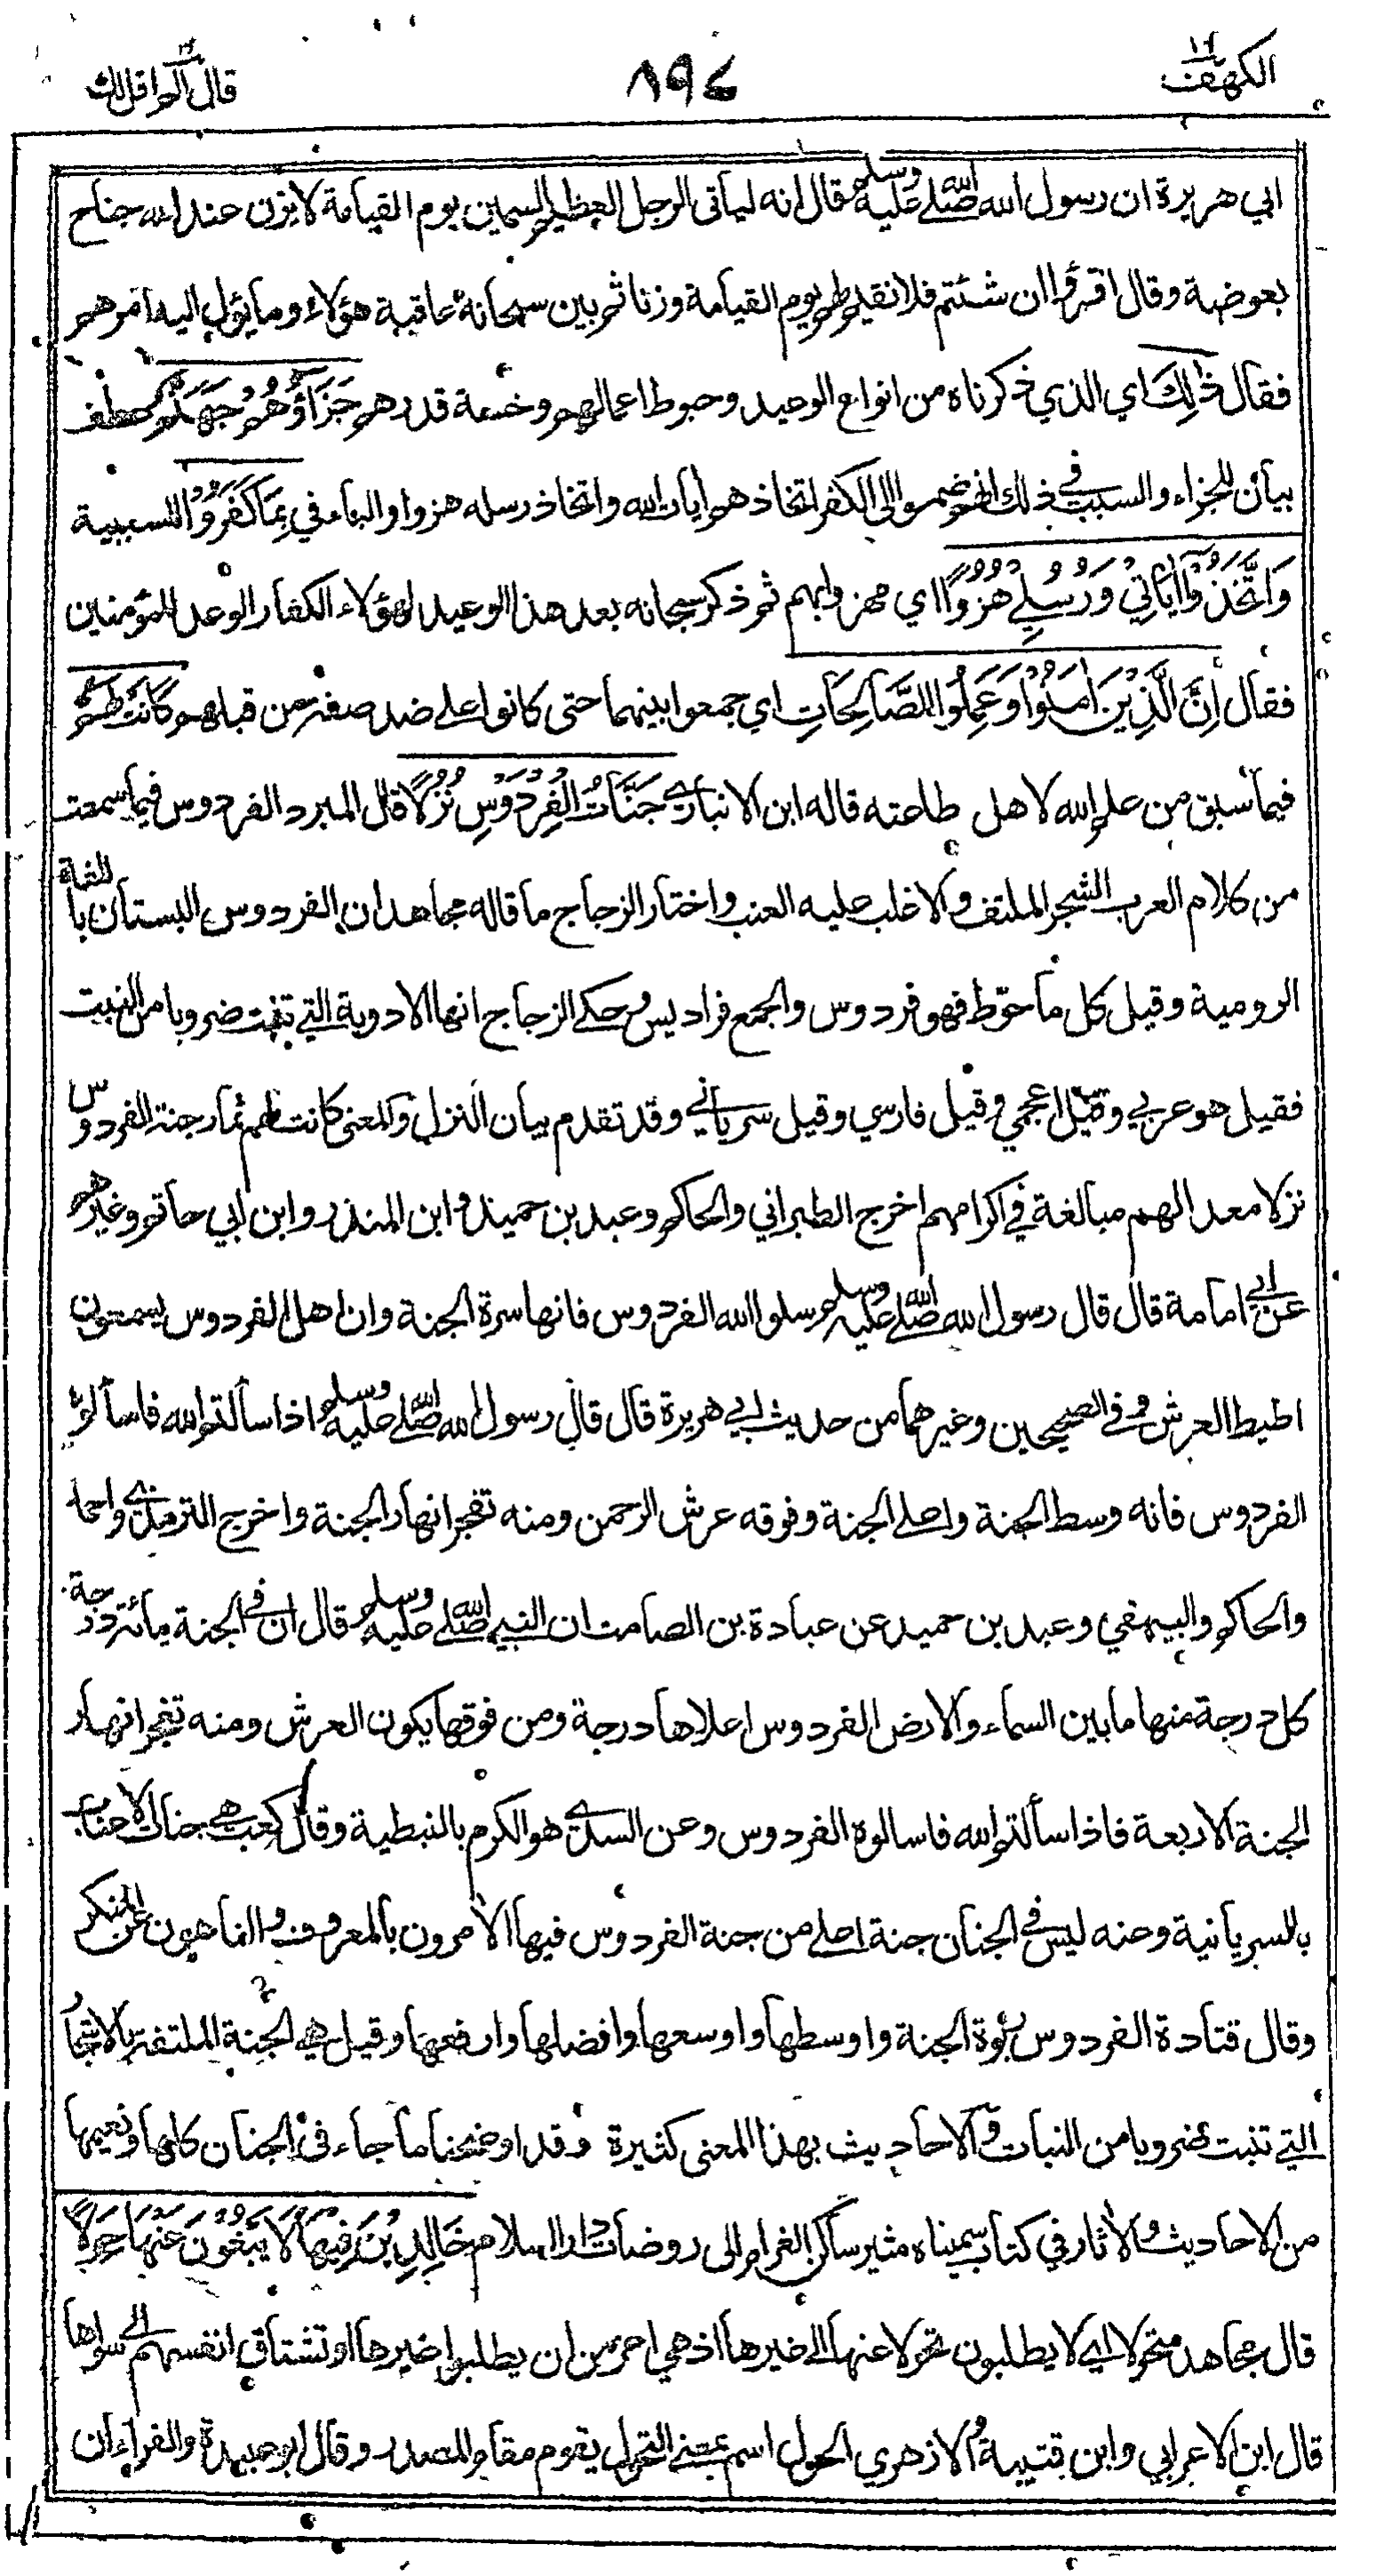 الكهف ١٨
٨٩٤
قال الم اقل لك ١٦
ابي هريرة ان رسول الله صلى الله عليه وسلم قال انه ليأتى الرجل العظيم السمين يوم القيامة لا يزن عند الله جناح
بعوضة وقال اقرؤا ان شئتم فلا نقيم لهم يوم القيامة وزنا ثم بين سبحانه عاقبة هؤلاء وما يؤل اليه امرهم
فقال ذٰلِكَ اي الذي ذكرناه من انواع الوعيد وحبوط اعمالهم وخسة قدرهم جَزَآؤُهُمْ جَهَنَّمُ عطف
بيان للجزاء والسبب في ذلك انهم ضموا الى الكفر اتخاذهم اٰيات الله واتخاذ رسله هزوا والباء في بِمَا كَفَرُوْا للسببية
وَاتَّخَذُوْٓا اٰيَاتِيْ وَرُسُلِيْ هُزُوًا اي مهزوا بهم ثم ذكر سبحانه بعد هذا الوعيد لهؤلاء الكفار الوعد للمؤمنين
فقال اِنَّ الَّذِيْنَ اٰمَنُوْا وَعَمِلُوا الصَّالِحَاتِ اي جمعوا بينهما حتى كانوا على ضد صفة من قبلهم كَانَتْ لَهُمْ
فيما سبق من علم الله لاهل طاعته قاله ابن الانبارى جَنَّاتُ الْفِرْدَوْسِ نُزُلًا قال المبرد الفردوس فيما سمعت
من كلام العرب الشجر الملتف والاغلب عليه العنب واختار الزجاج ما قاله مجاهد ان الفردوس البستان باللغة
الرومية وقيل كل ما حوّط فهو فردوس والجمع فراديس وحكى الزجاج انها الاودية التي تنبت ضروبا من النبت
فقيل هو عربي وقيل اعجمي وقيل فارسي وقيل سرياني وقد تقدم بيان النزل والمعنى كانت لهم ثمار جنة الفردوس
نزلا معد الهم مبالغة في اكرامهم اخرج الطبراني والحاكم وعبد بن حميد وابن المنذر وابن ابي حاتم وغيرهم
عن ابي امامة قال قال رسول الله صلى الله عليه وسلم سلوا الله الفردوس فانها سرة الجنة وان اهل الفردوس يسمعون
اطيط العرش وفي الصحيحين وغيرهما من حديث ابي هريرة قال قال رسول الله صلى الله عليه وسلم اذا سألتم الله فاسألوه
الفردوس فانه وسط الجنة واعلى الجنة وفوقه عرش الرحمن ومنه تفجر انهار الجنة واخرج الترمذي واحمد
والحاكم والبيهقي وعبد بن حميد عن عبادة بن الصامت ان النبي صلى الله عليه وسلم قال ان في الجنة مائة درجة
كل درجة منها ما بين السماء والارض الفردوس اعلاها درجة ومن فوقها يكون العرش ومنه تفجر انهار
الجنة الاربعة فاذا سألتم الله فاسالوه الفردوس وعن السدي هو الكرم بالنبطية وقال كعب هي جنات الاعناب
بالسريانية وعنه ليس في الجنان جنة اعلى من جنة الفردوس فيها الاٰمرون بالمعروف والناهون عن المنكر
وقال قتادة الفردوس ربوة الجنة واوسطها واوسعها وافضلها وارفعها وقيل هي الجنة الملتفة بالاشجار
التي تنبت ضروبا من النبات والاحاديث بهذا المعنى كثيرة وقد اوضحنا ما جاء في الجنان كلها ونعيمها
من الاحاديث والاٰثار في كتاب سميناه مثير ساكن الغرام الى روضات دار السلام خَالِدِيْنَ فِيْهَا لَا يَبْغُوْنَ عَنْهَا حِوَلًا
قال مجاهد متحولا اي لا يطلبون تحولا عنها الى غيرها اذ هي اعز من ان يطلبوا غيرها او تشتاق انفسهم الى سواها
قال ابن الاعرابي وابن قتيبة والازهري الحول اسم بمعنى التحول يقوم مقام المصدر وقال ابو عبيدة والفراء ان